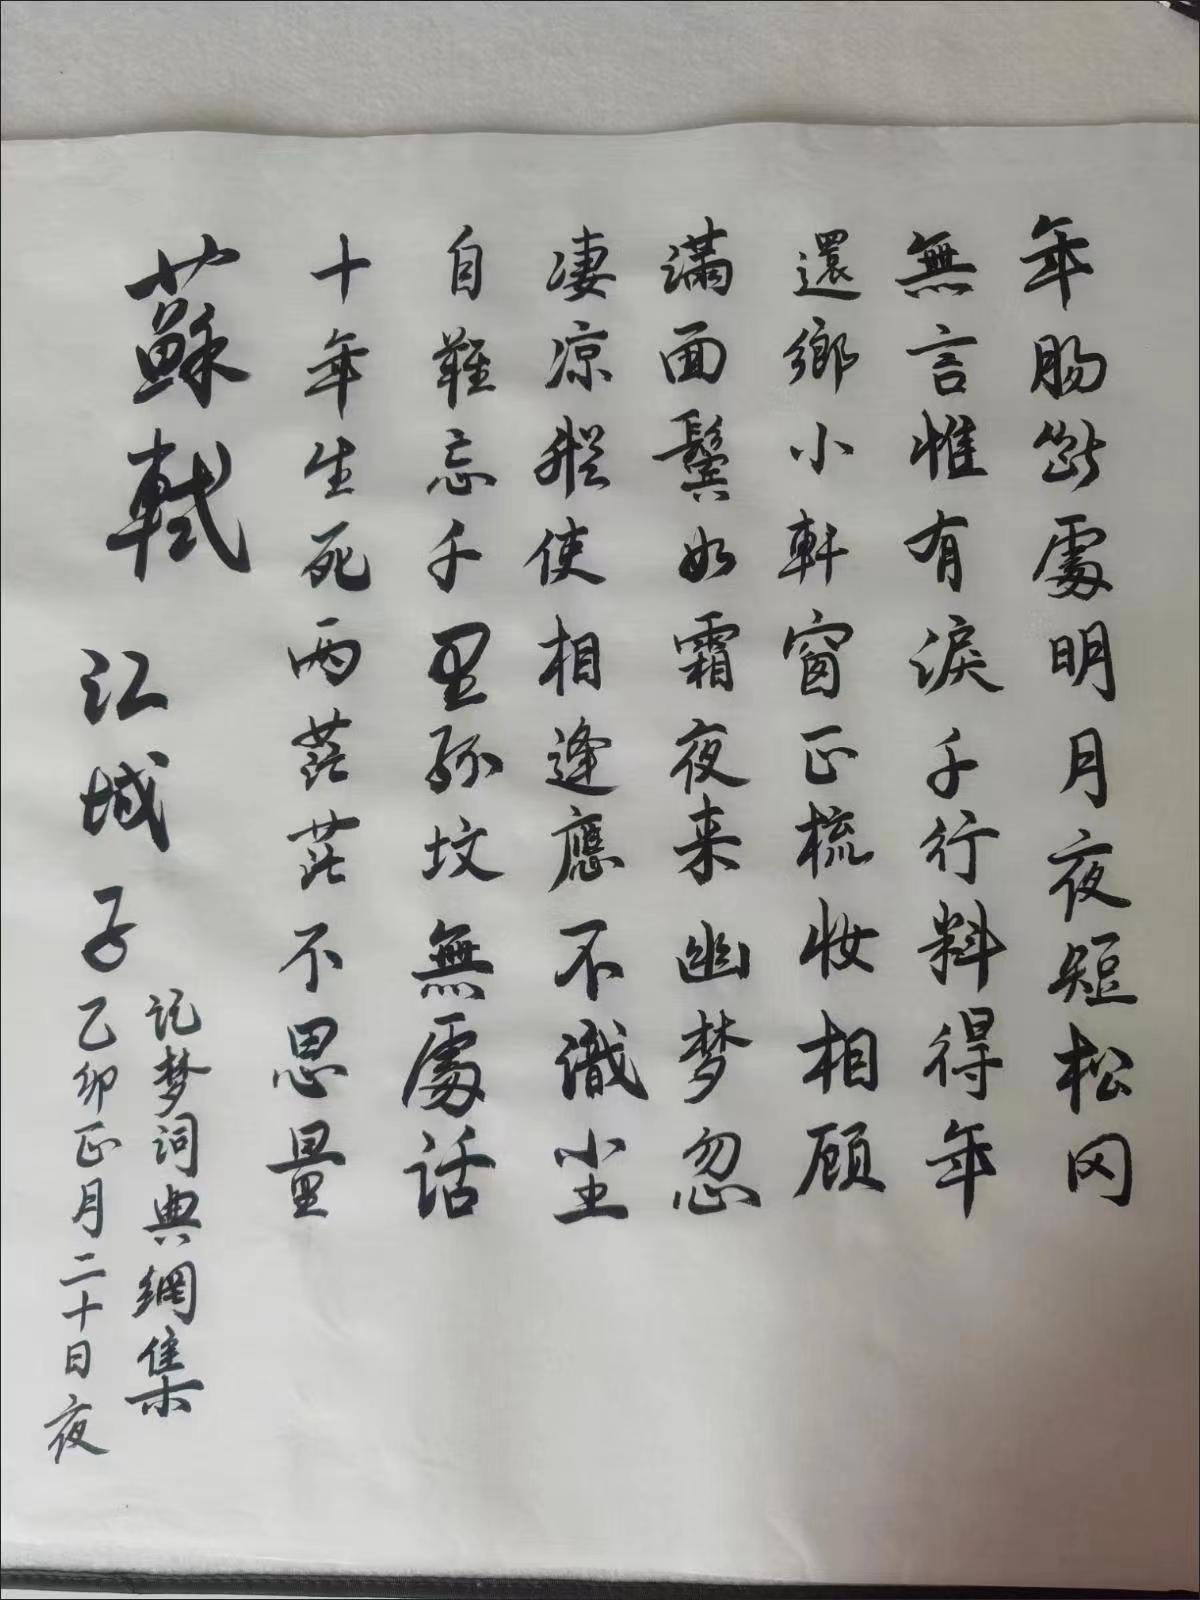 蘇軾 江城子
乙卯正月二十日夜
记梦词典網集
十年生死两茫茫不思量
自難忘千里孤坟無處話
凄凉縱使相逢應不識尘
滿面鬓如霜夜来幽梦忽
還鄉小軒窗正梳妆相顾
無言惟有淚千行料得年
年肠斷處明月夜短松冈